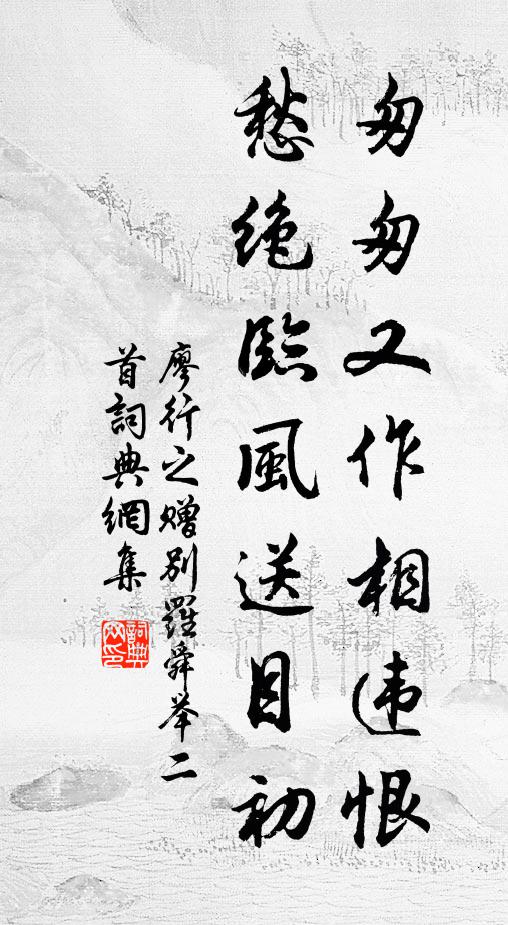 匆匆又作相违恨
愁绝臨風送目初
廖行之赠别羅舜举二
首詞典網集
詞典
网印